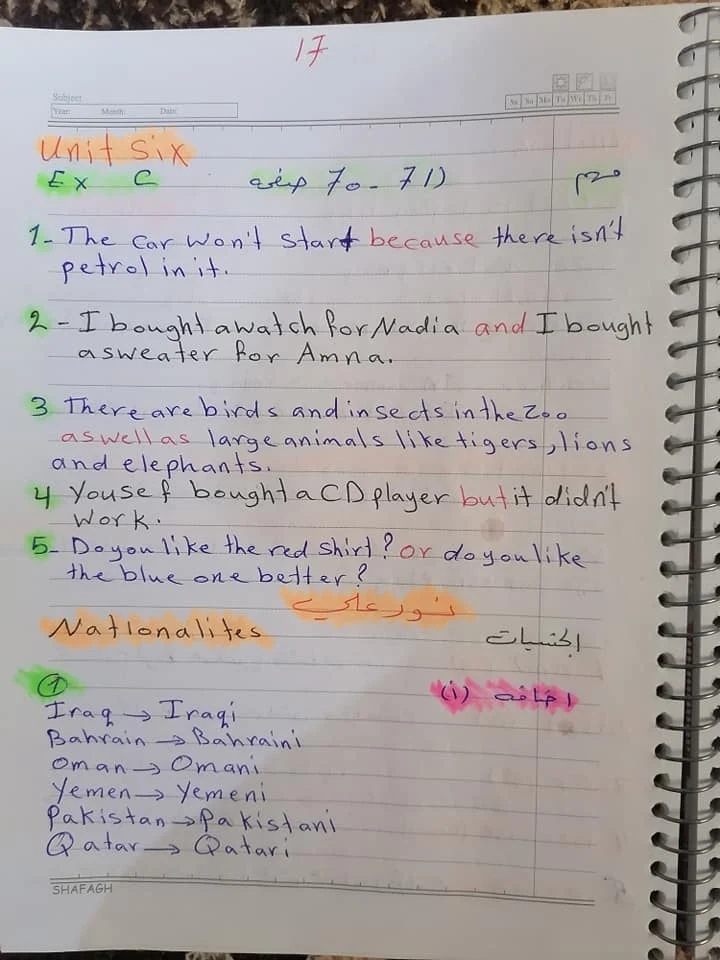 17
Subject
Year: Month: Date:
Sa Su Mo Tu We Th Fr
Unit Six
Ex C صفحه 70-71) مهم
1- The car won't start because there isn't
petrol in it.
2- I bought a watch for Nadia and I bought
a sweater for Amna.
3 There are birds and insects in the Zoo
as well as large animals like tigers, lions
and elephants.
4 Yousef bought a CD player but it didn't
work.
5- Do you like the red shirt? or do you like
the blue one better?
نور علي
Nationalites الجنسيات
1 اضافة (i)
Iraq → Iraqi
Bahrain → Bahraini
Oman → Omani
Yemen → Yemeni
Pakistan → Pakistani
Qatar → Qatari
SHAFAGH